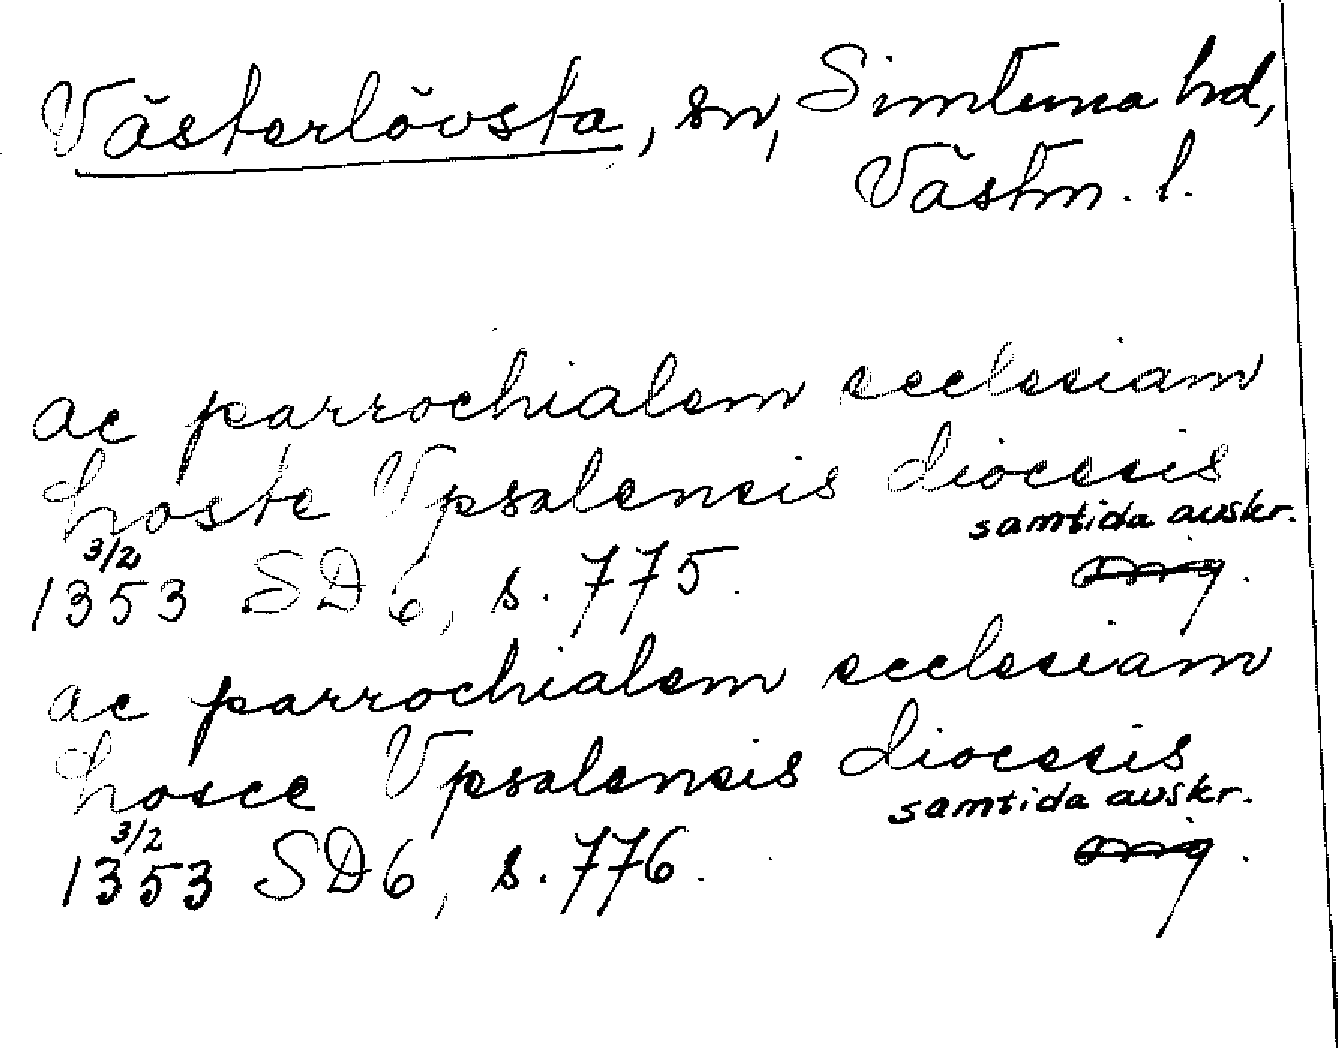 Västerlövsta, sn, Simtuna hd,
Västm. l.
ac parrochialem ecclesiam
hoste Vpsalensis diocesis
samtida avskr.
3/2
1353 SD 6, s. 775. orig.
ac parrochialem ecclesiam
hosce Vpsalensis diocesis
samtida avskr.
3/2
1353 SD 6, s. 776. orig.